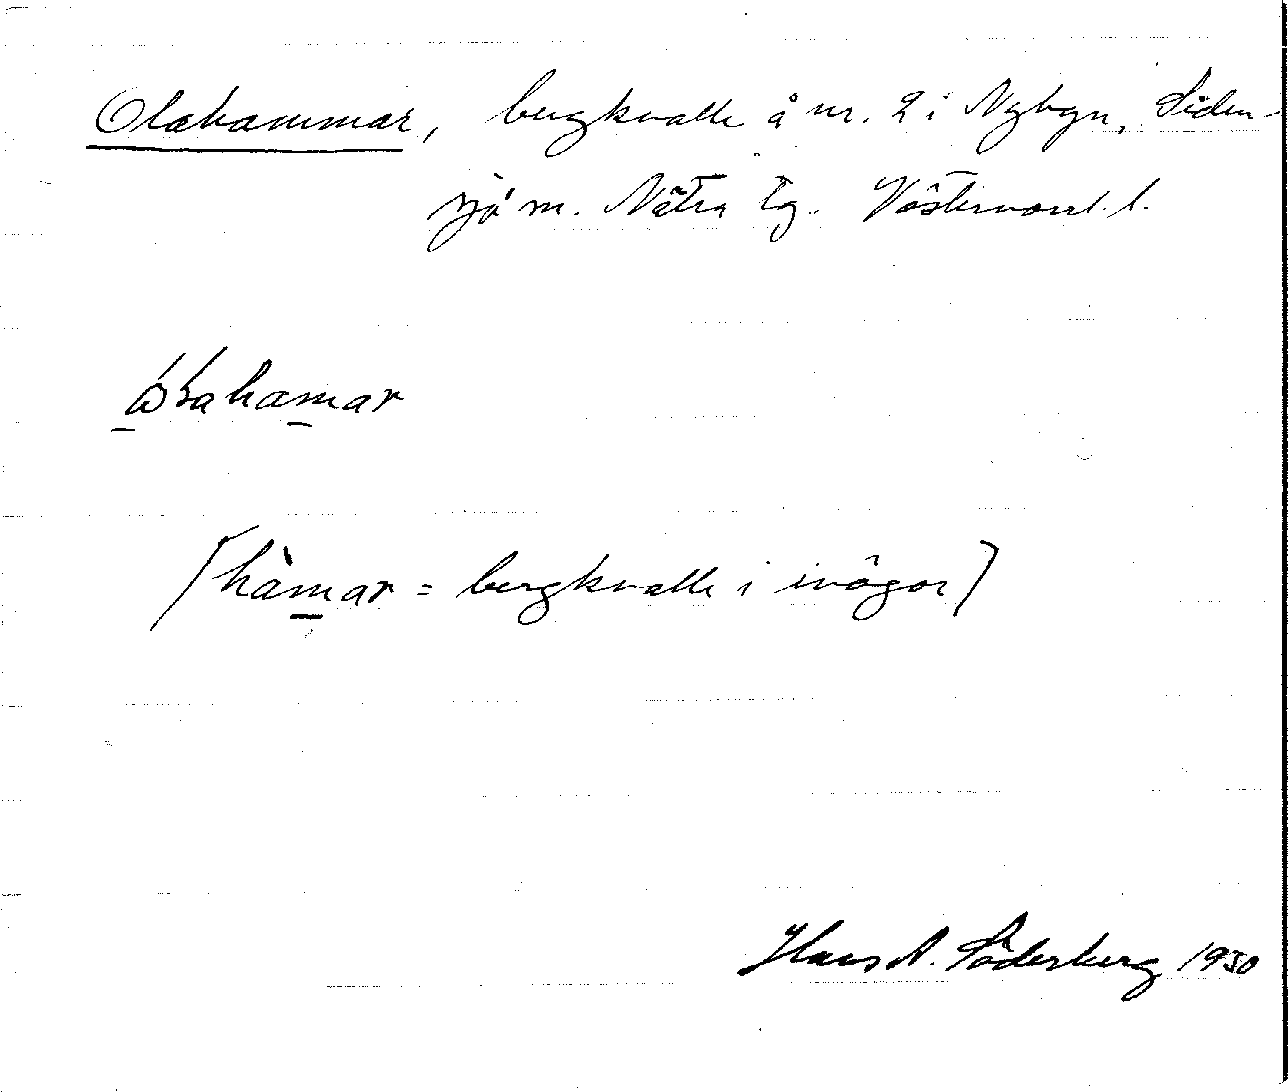 Olahammar, bergknalle å nr. 2 i Nybyn, Siden-
sjö sn. Nätra tg. Västernorrl. l.
hamar = bergknalle i inägor
Hans A. Söderberg 1930